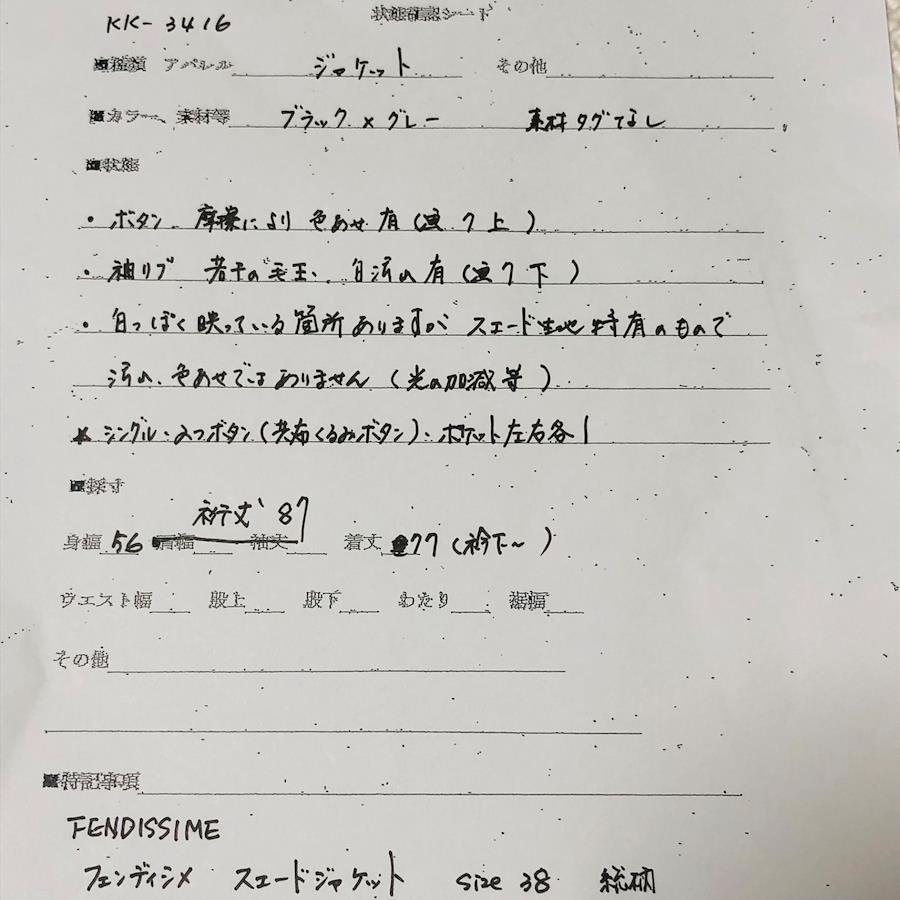 状態確認シート
KK-3416
■種類 アパレル ジャケット その他
■カラー、素材等 ブラック×グレー 素材タグなし
■状態
・ボタン 摩擦により色あせ有(画7上)
・袖リブ 若干の毛玉、白汚れ有(画7下)
・白っぽく映っている箇所ありますが スエード生地特有のもので
汚れ、色あせではありません(光の加減等)
★シングル・2つボタン(共布くるみボタン)・ポケット左右各1
■採寸
裄丈 87
身幅 56 肩幅 袖丈 着丈 77(衿下~)
ウエスト幅 股上 股下 わたり 裾幅
その他
■特記事項
FENDISSIME
フェンディシメ スエードジャケット size 38 総柄